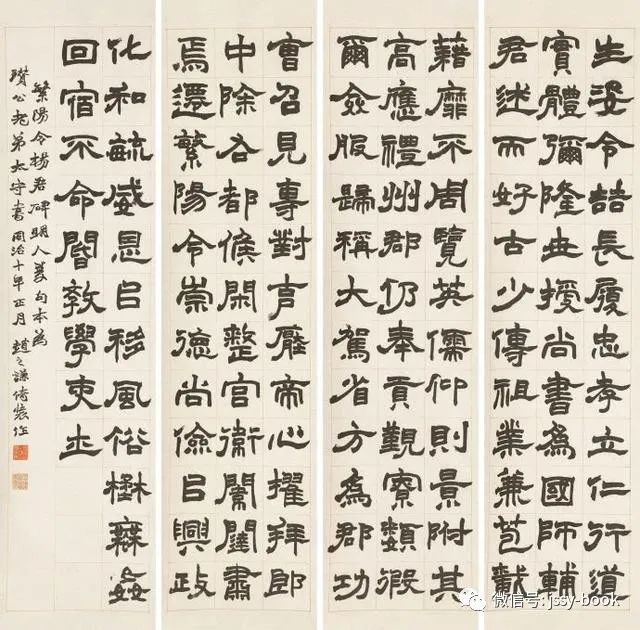 生姿令喆長履忠孝立仁行道
實體彌隆世授尚書為國師輔
君述而好古少傳祖業兼苞載
藉靡不周覽英儒仰則景附其
高應禮州郡仍奉貢覲寮類假
爾僉服歸稱大駕省方為郡功
曹召見專對言應帝心擢拜郎
中除右都候閑整官衛闈闥肅
焉遷繁陽令崇德尚儉㠯興政
化和毓威恩㠯移風俗楙姦
回宿不命閽教學吏士
繁陽令楊君碑明人雙句本為
瓚公老弟太守書同治十年正月趙之謙倚裝作
微信号:jssy-book